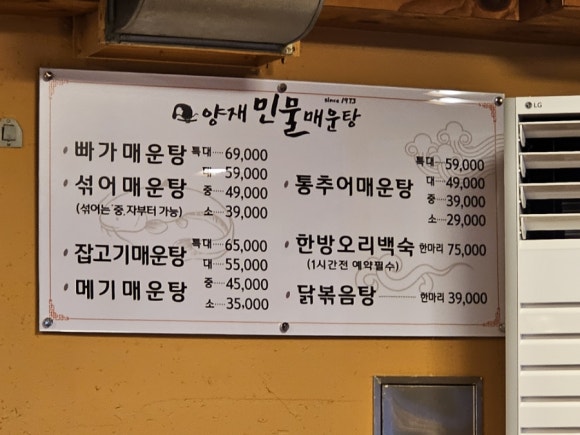 since 1973
양재 민물매운탕
• 빠가매운탕 특대 69,000
대 59,000
• 섞어매운탕 중 49,000
(섞어는 중.자부터 가능) 소 39,000
• 잡고기매운탕 특대 65,000
대 55,000
• 메기매운탕 중 45,000
소 35,000
특대 59,000
• 통추어매운탕 대 49,000
중 39,000
소 29,000
• 한방오리백숙 한마리 75,000
(1시간전 예약필수)
• 닭볶음탕 한마리 39,000
LG